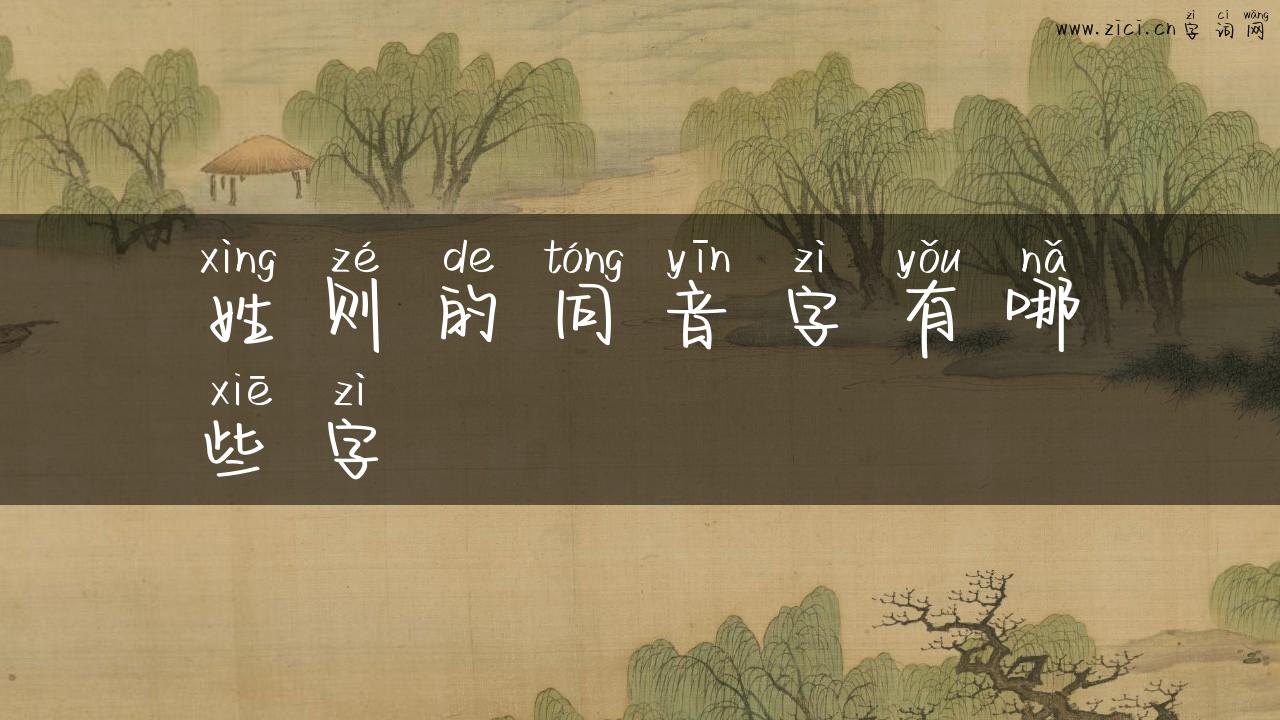 zì cí wǎng
www.zici.cn 字词网
xìng zé de tóng yīn zì yǒu nǎ
姓则的同音字有哪
xiē zì
些字